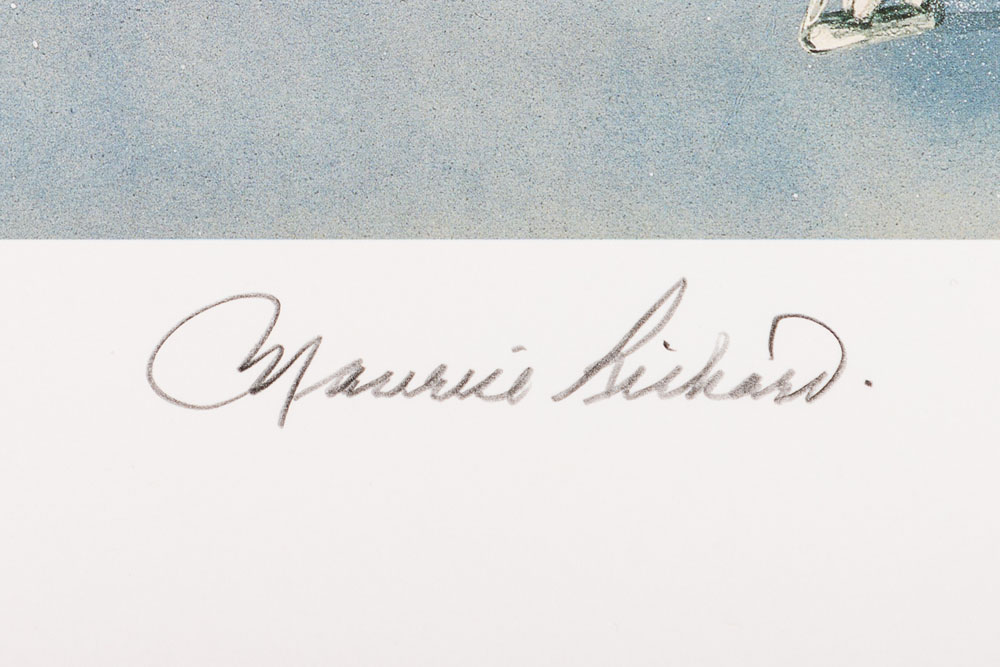 Maurice Richard.